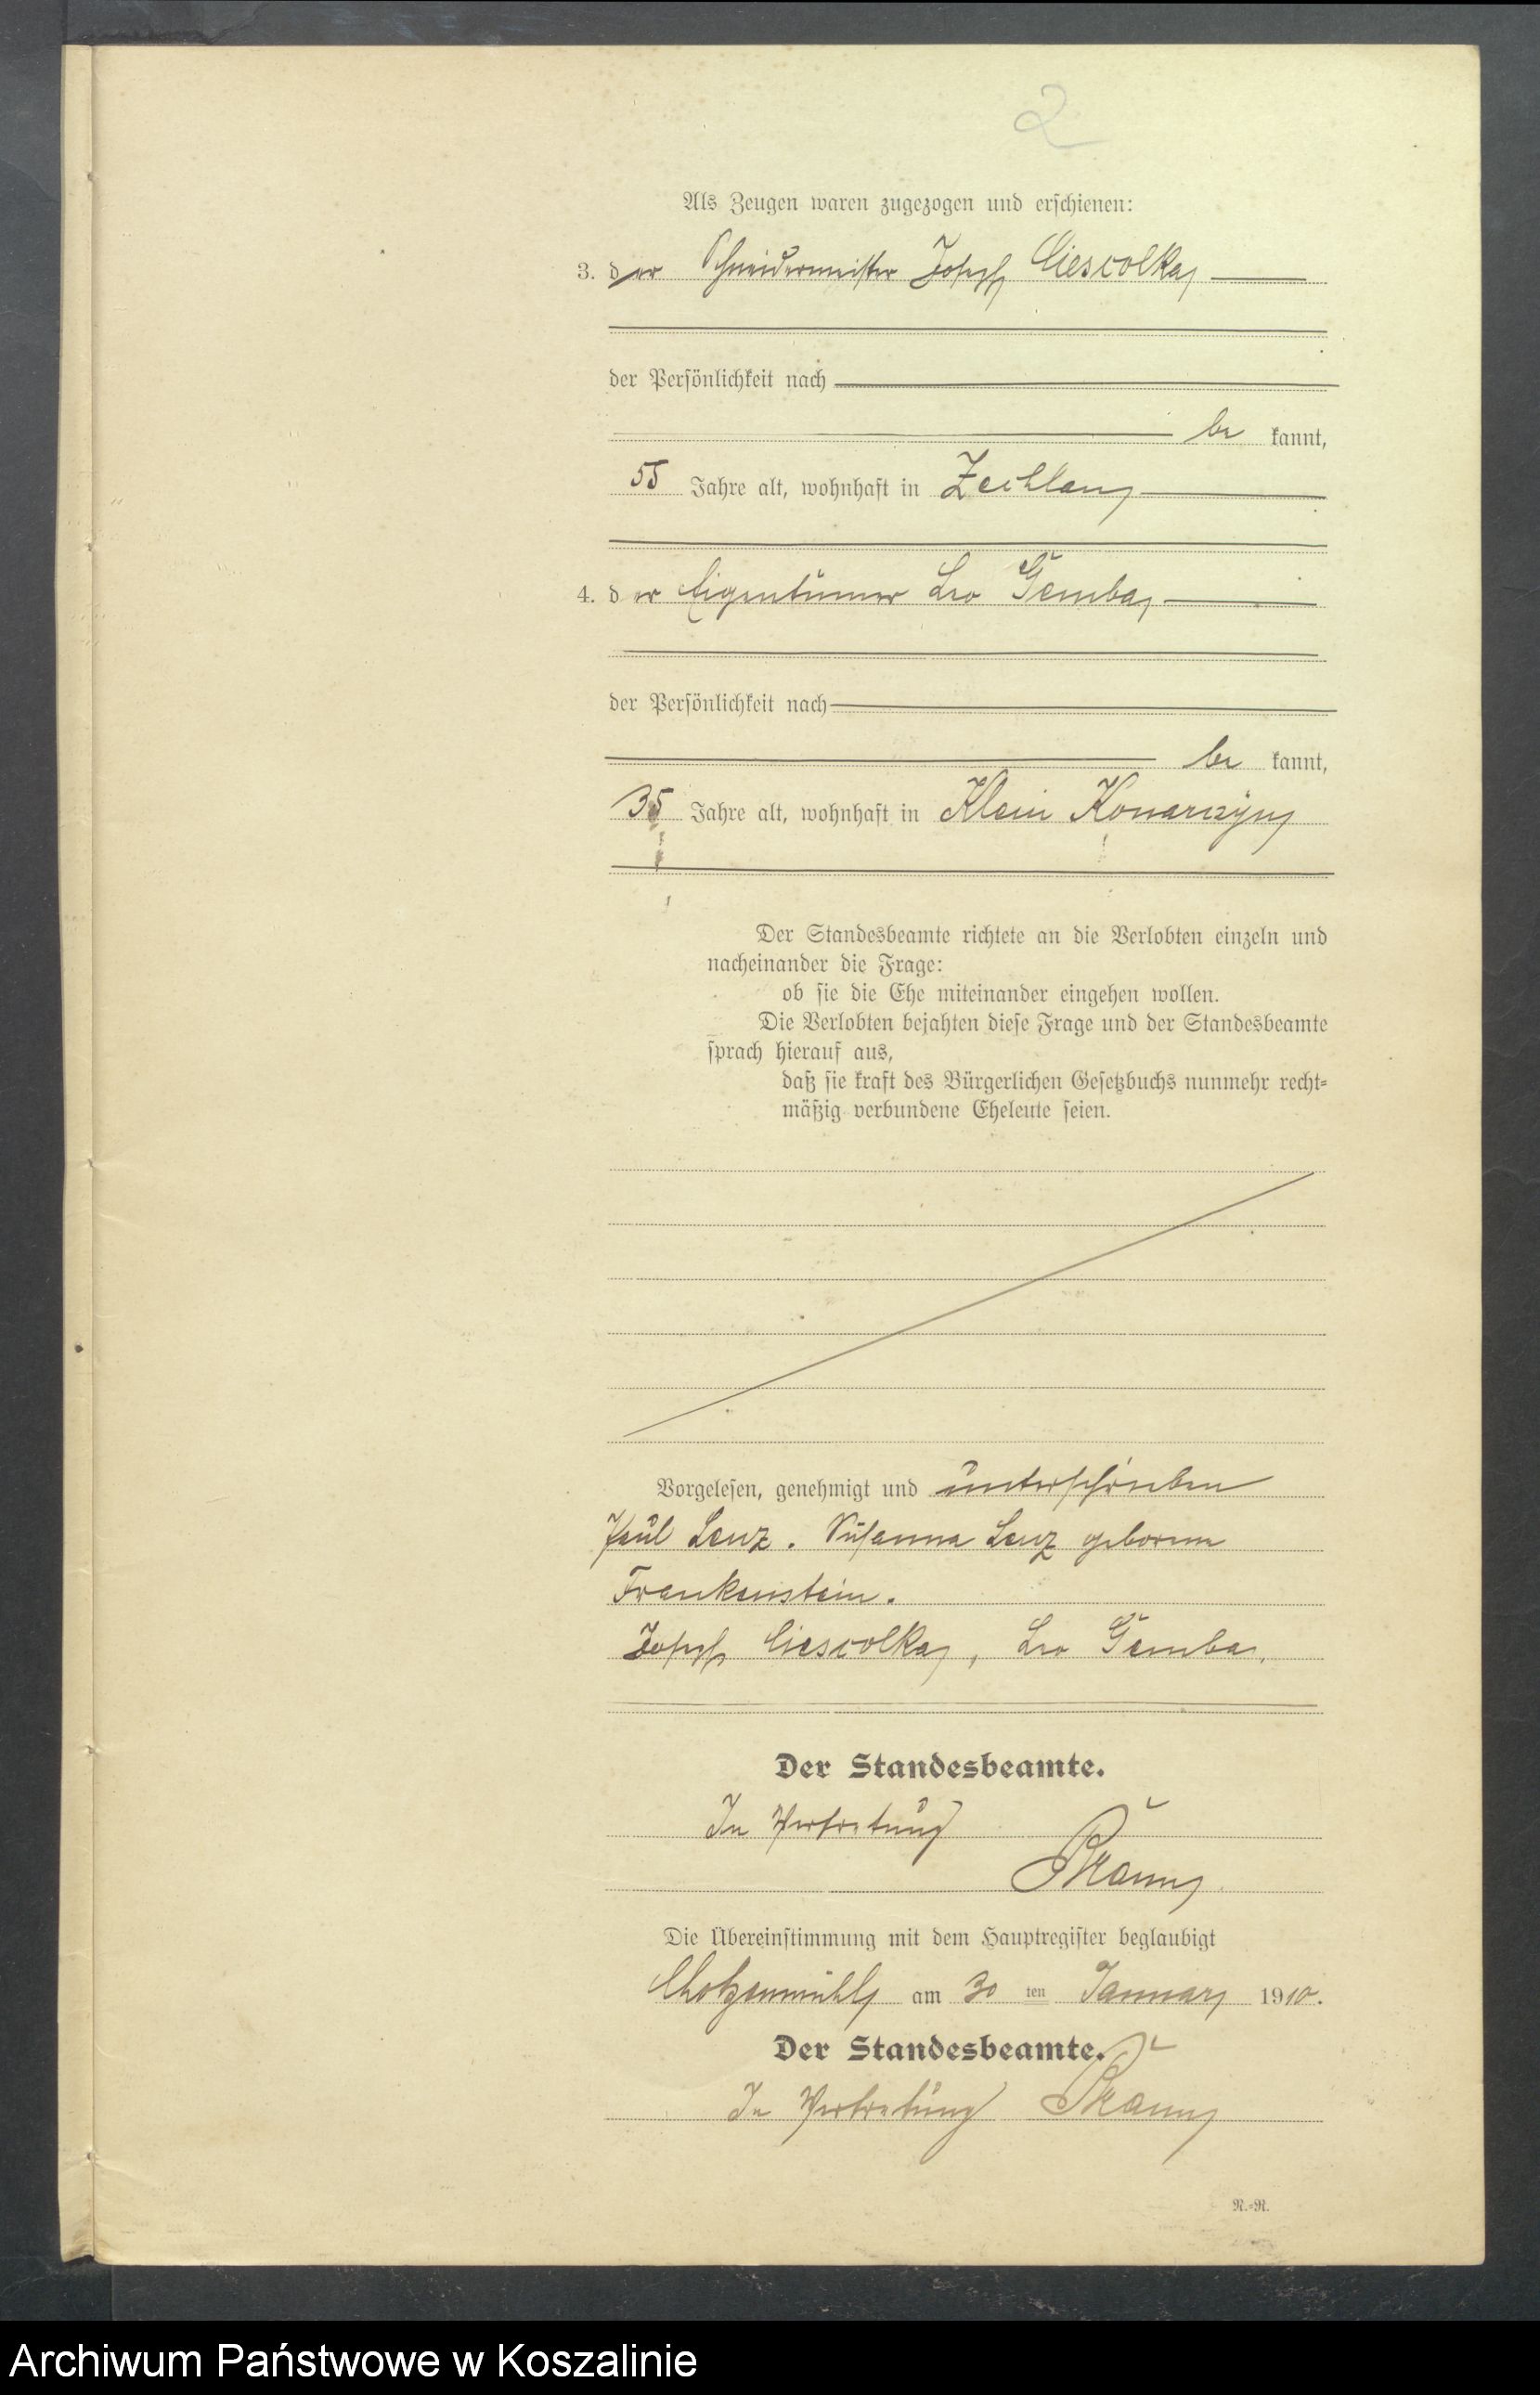 2
Als Zeugen waren zugezogen und erschienen:
3. der Schneidermeister Joseph Ciescolka,
der Persönlichkeit nach
be kannt,
55 Jahre alt, wohnhaft in Zechlau,
4. der Eigentümer Leo Gemba,
der Persönlichkeit nach
be kannt,
35 Jahre alt, wohnhaft in Klein Konarczyn,
Der Standesbeamte richtete an die Verlobten einzeln und
nacheinander die Frage:
ob sie die Ehe miteinander eingehen wollen.
Die Verlobten bejahten diese Frage und der Standesbeamte
sprach hierauf aus,
daß sie kraft des Bürgerlichen Gesetzbuchs nunmehr recht-
mäßig verbundene Eheleute seien.
Vorgelesen, genehmigt und unterschrieben
Paul Lenz. Susanna Lenz geborene
Frankenstein.
Joseph Ciescolka, Leo Gemba.
Der Standesbeamte.
In Vertretung
Die Übereinstimmung mit dem Hauptregister beglaubigt
Chotzenmühl, am 30 ten Januar 1910.
Der Standesbeamte.
In Vertretung
N.-R.
Archiwum Państwowe w Koszalinie